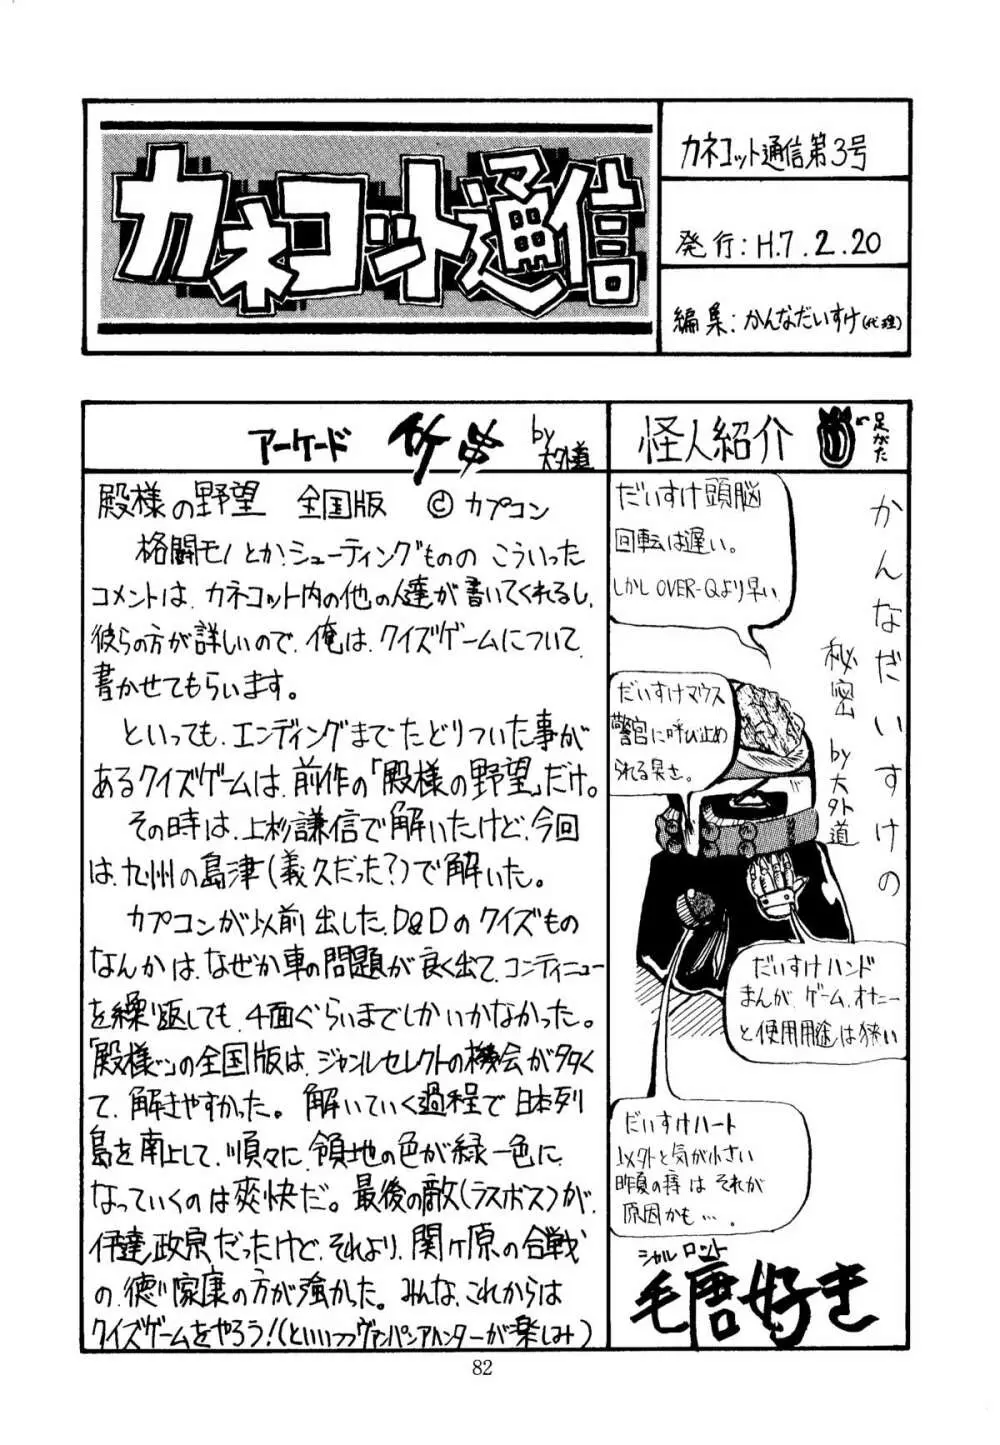 カネコット通信
カネコット通信第3号
発行：H.7.2.20
編集：かんなだいすけ(代理)
アーケード 竹串 by 大外道
殿様の野望 全国版 © カプコン
格闘モノとか、シューティングものの こういった
コメントは、カネコット内の他の人達が書いてくれるし、
彼らの方が詳しいので、俺は、クイズゲームについて
書かせてもらいます。
といっても、エンディングまでたどりついた事が
あるクイズゲームは、前作の「殿様の野望」だけ。
その時は、上杉謙信で解いたけど、今回
は、九州の島津(義久だった?)で解いた。
カプコンが以前出した、D&Dのクイズもの
なんかは、なぜか車の問題が良く出て、コンティニュー
を繰り返しても、4面ぐらいまでしかいかなかった。
「殿様〜」の全国版は、ジャンルセレクトの機会が多く
て、解きやすかった。解いていく過程で日本列
島を南上して、順々に、領地の色が緑一色に
なっていくのは爽快だ。最後の敵(ラスボス)が、
伊達政宗だったけど、それより、関ヶ原の合戦
の、徳川家康の方が強かった。みんな、これからは
クイズゲームをやろう!(といいつつヴァンパイアハンターが楽しみ)
怪人紹介
足がた
かんなだいすけの
秘密 by 大外道
だいすけ頭脳
回転は遅い。
しかしOVER-Qより早い
だいすけマウス
警官に呼び止め
られる臭さ。
だいすけハンド
まんが、ゲーム、オナニー
と使用用途は狭い
だいすけハート
以外と気が小さい
昨夏の痔は それが
原因かも…。
シャルロット
毛唐好き
82